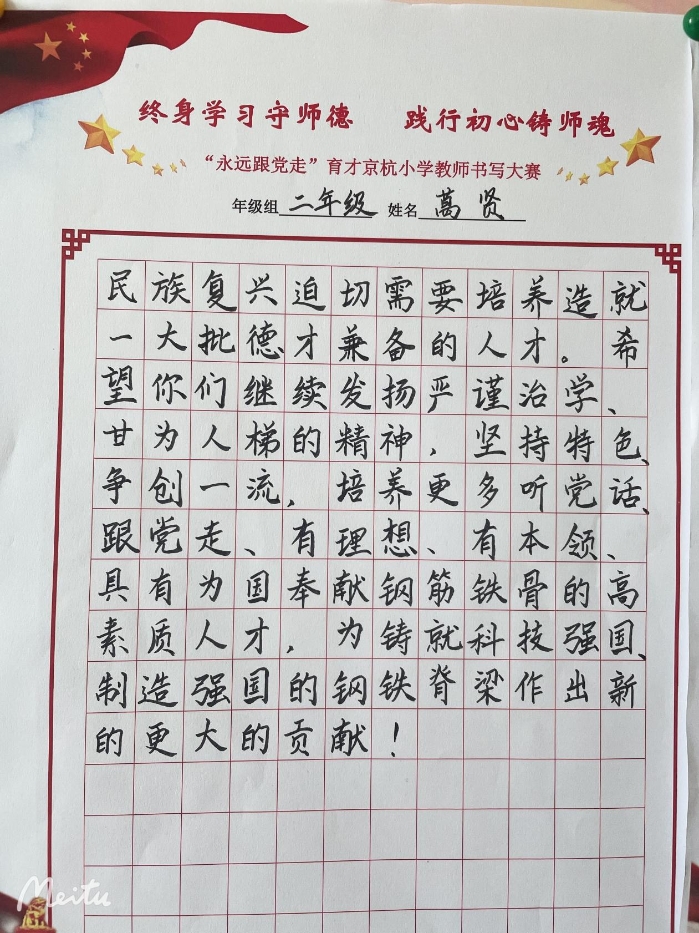 终身学习守师德 践行初心铸师魂
“永远跟党走”育才京杭小学教师书写大赛
年级组 二年级 姓名 葛贤
民族复兴迫切需要培养造就
一大批德才兼备的人才。希
望你们继续发扬严谨治学、
甘为人梯的精神，坚持特色、
争创一流，培养更多听党话、
跟党走、有理想、有本领、
具有为国奉献钢筋铁骨的高
素质人才，为铸就科技强国、
制造强国的钢铁脊梁作出新
的更大的贡献！
Meitu